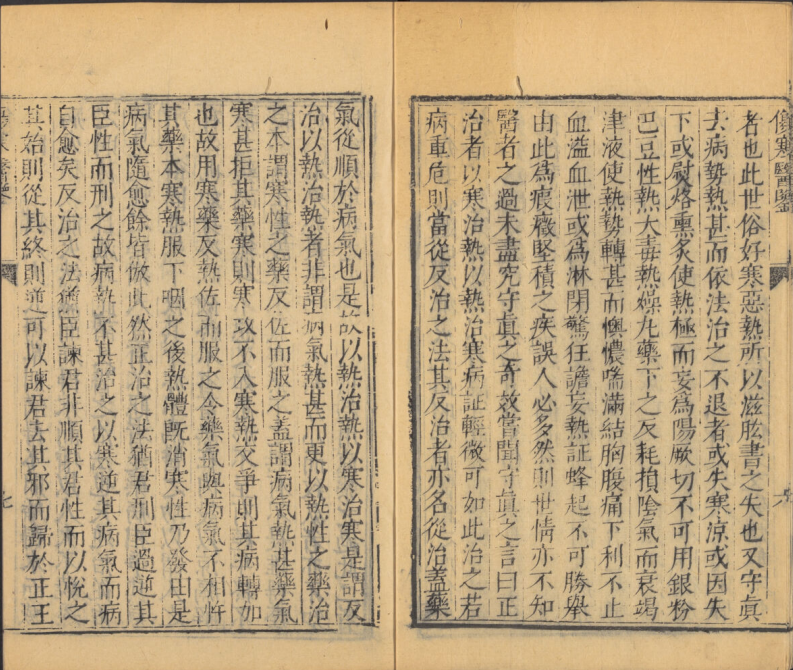 傷寒醫鑒
者也此世俗好寒惡熱所以滋眩書之失也又守眞
去病勢熱甚而依法治之不退者或失寒涼或因失
下或熨烙熏炙使熱極而妄爲陽厥切不可用銀粉
巴豆性熱大毒熱燥丸藥下之反耗損陰氣而衰竭
津液使熱勢轉甚而懊憹喘滿結胸腹痛下利不止
血溢血泄或爲淋閉驚狂譫妄熱証蜂起不可勝舉
由此爲痕癥堅積之疾誤人必多然則世情亦不知
醫者之過未盡究守眞之奇效嘗聞守眞之言曰正
治者以寒治熱以熱治寒病証輕微可如此治之若
病重危則當從反治之法其反治者亦名從治蓋藥
六
氣從順於病氣也是故以熱治熱以寒治寒是謂反
治以熱治熱者非謂病氣熱甚而更以熱性之藥治
之本謂寒性之藥反佐而服之蓋謂病氣熱甚藥氣
寒甚拒其藥寒則寒攻不入寒熱交爭則其病轉加
也故用寒藥反熱佐而服之令藥氣與病氣不相忤
其藥本寒熱服下咽之後熱體旣消寒性乃發由是
病氣隨愈餘皆倣此然正治之法猶君刑臣過逆其
臣性而刑之故病熱不甚治之以寒逆其病氣而病
自愈矣反治之法猶臣諫君非順其君性而以悅之
其始則從其終則逆可以諫君去其邪而歸於正王
七